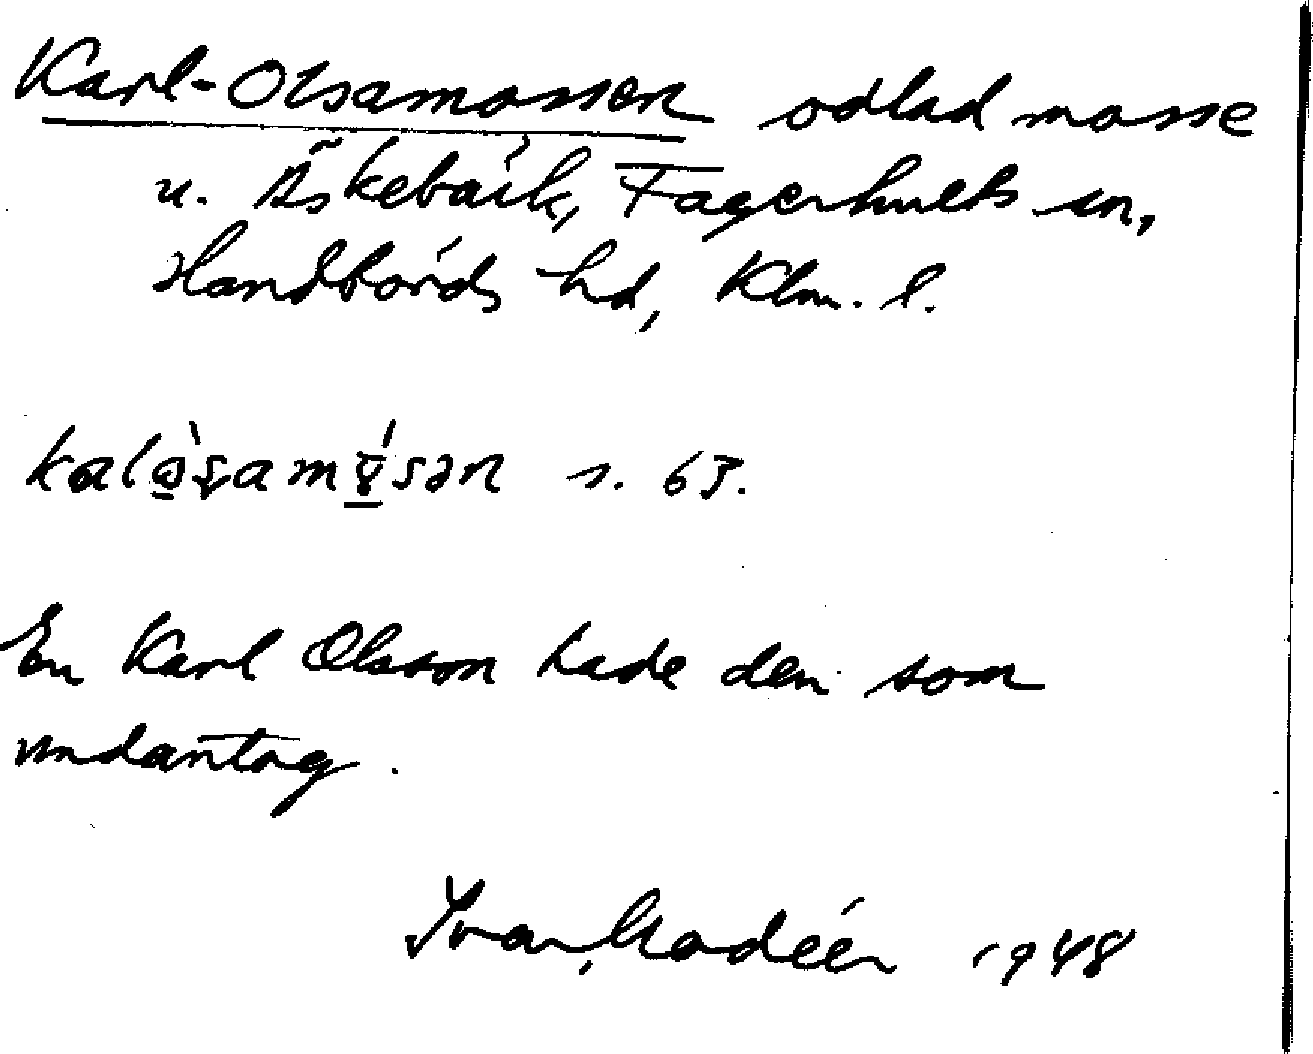 Karl-Olsamossen odlad mosse
u. Äskebäck, Fagerhults sn,
Handbörds hd, Klm. l.
s. 63.
En Karl Olsson hade den som
undantag.
Ivar Modéer 1948